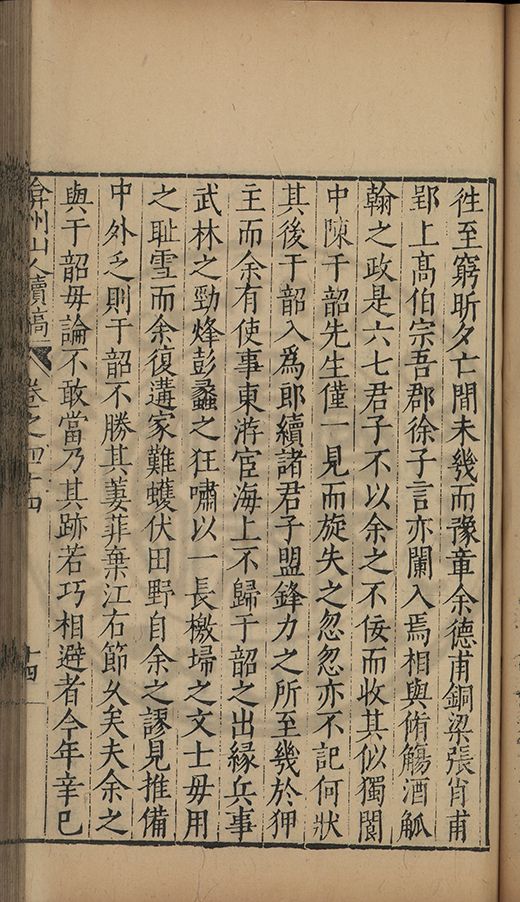 徃至窮昕夕亡間未幾而豫章余德甫銅梁張肖甫
郢上高伯宗吾郡徐子言亦闌入焉相與脩觴酒觚
翰之政是六七君子不以余之不佞而收其似獨閩
中陳于韶先生僅一見而旋失之忽忽亦不記何狀
其後于韶入為郎續諸君子盟鋒力之所至幾於狎
主而余有使事東游宦海上不歸于韶之出緣兵事
武林之勁烽彭蠡之狂嘯以一長檄埽之文士毋用
之耻雪而余復遘家難蠖伏田野自余之謬見推備
中外乏則于韶不勝其萋菲棄江右節久矣夫余之
與于韶毋論不敢當乃其跡若巧相避者今年辛巳
弇州山人續稿 卷之四十四 十四